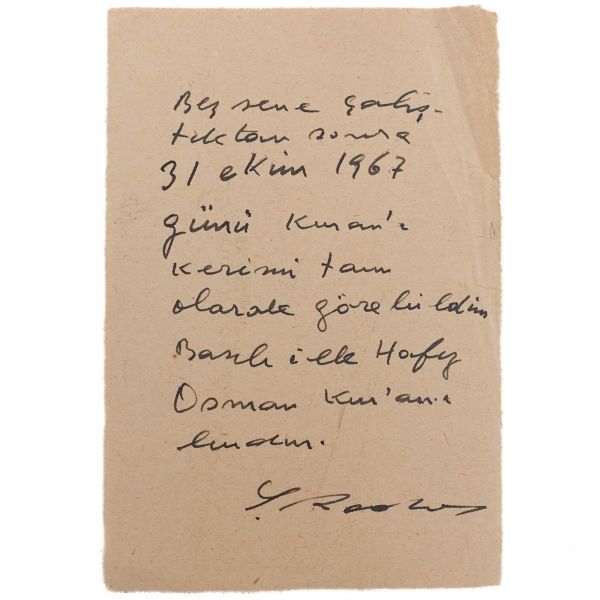 Beş sene çalış-
tıktan sonra
31 ekim 1967
günü Kuran'ı
kerimi tam
olarak görebildim
Basılı ilk Hafız
Osman Kur'anı
budur.